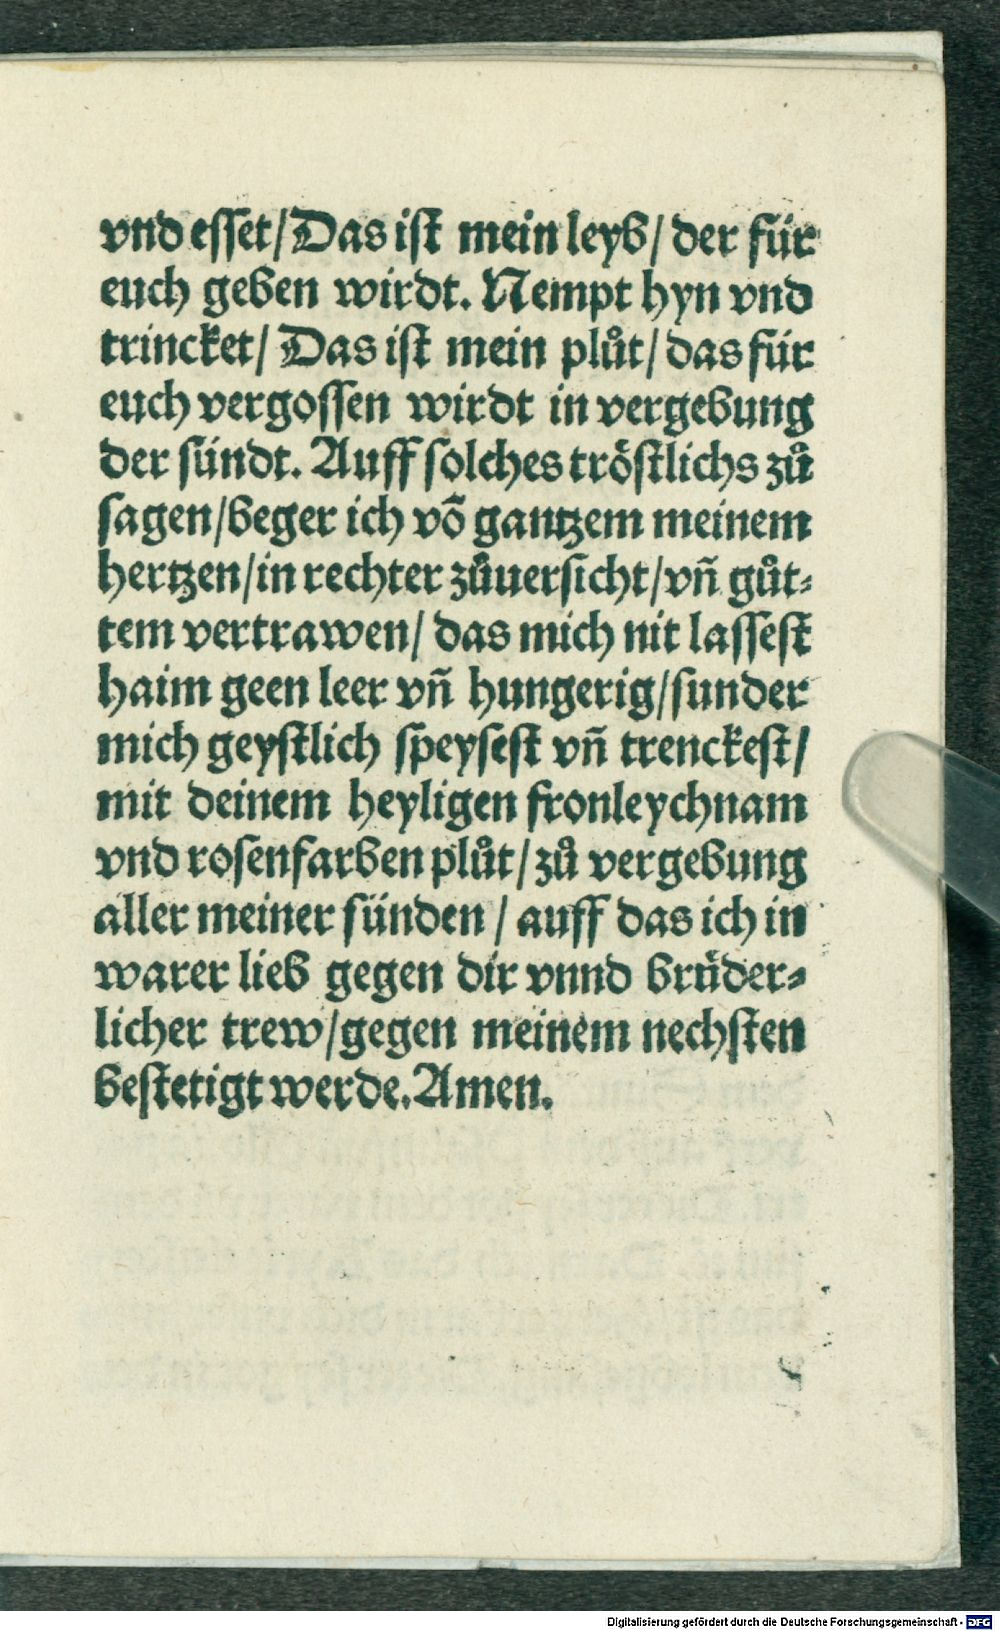 vnd esset/ Das ist mein leyb/ der für
euch geben wirdt. Nempt hyn vnd
trincket/ Das ist mein plůt/ das für
euch vergossen wirdt in vergebung
der sündt. Auff solches tröstlichs zů
sagen/ beger ich võ gantzem meinem
hertzen/ in rechter zůuersicht/ vñ gůt-
tem vertrawen/ das mich nit lassest
haim geen leer vñ hungerig/ sunder
mich geystlich speysest vñ trenckest/
mit deinem heyligen fronleychnam
vnd rosenfarben plůt/ zů vergebung
aller meiner sünden / auff das ich in
warer lieb gegen dir vnnd brüder-
licher trew/ gegen meinem nechsten
bestetigt werde. Amen.
Digitalisierung gefördert durch die Deutsche Forschungsgemeinschaft - DFG